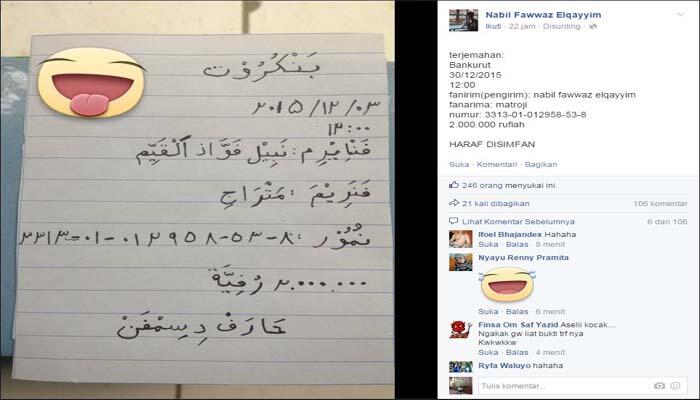 بَنْكُرُوْت
٢٠١٥/١٢/٠٣
١٢:٠٠
فَنَايِرِم : نَبِيْل فَوَّاذ ٱلْقَيِّم
فَنَرِيْمَ : مَتْرَاجِ
نُمُوْر : ٣٣١٣-٠١-٠١٢٩٥٨-٥٣-٨
٢.٠٠٠.٠٠٠ رُفِيَّة
حَارَفْ دِسِمْفَنْ
Nabil Fawwaz Elqayyim
Ikuti · 22 jam · Disunting ·
terjemahan:
Bankurut
30/12/2015
12:00
fanirim(pengirim): nabil fawwaz elqayyim
fanarima: matroji
numur: 3313-01-012958-53-8
2.000.000 rufiah
HARAF DISIMFAN
Suka · Komentari · Bagikan
246 orang menyukai ini.
21 kali dibagikan
106 komentar
Lihat Komentar Sebelumnya
6 dari 106
Ifoel Bhajandex Hahaha
Suka · Balas · 8 menit
Nyayu Renny Pramita
Suka · Balas · 6 menit
Finsa Om Saf Yazid Aselii kocak....
Ngakak gw liat bukti trf nya
Kwkwkkw
Suka · Balas · 4 menit
Ryfa Waluyo hahaha
Tulis komentar...